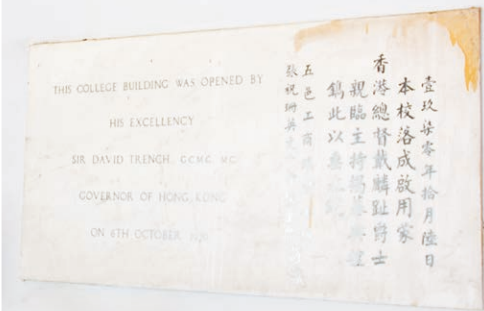 THIS COLLEGE BUILDING WAS OPENED BY
HIS EXCELLENCY
SIR DAVID TRENCH, G.C.M.G. M.C.
GOVERNOR OF HONG KONG
ON 6TH OCTOBER 1970
壹玖柒零年拾月陸日
本校落成啟用蒙
香港總督戴麟趾爵士
親臨主持揭幕典禮
鐫此以
五邑工商
張祝珊英文